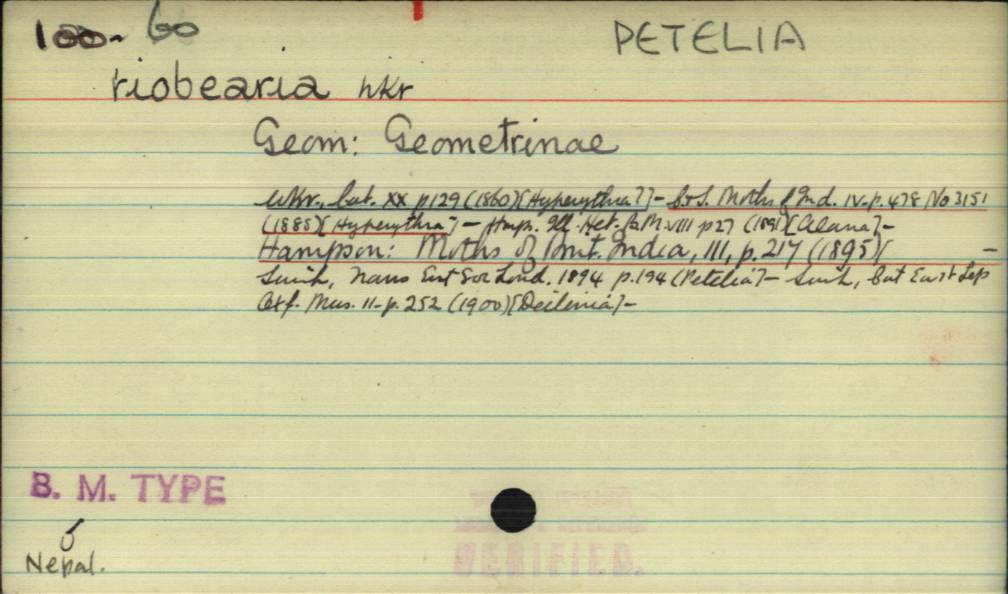 100- 60 PETELIA
riobearia Wkr
Geom: Geometrinae
Wkr., Cat. XX p129 (1860)[Hyperythra?]- C&S. Moths of Ind. IV-p.478 No 3151
(1885)[Hyperythra]- Hmps. Ill. Het. B.M. VIII p27 (1891)[Alana]-
Hampson: Moths of Brit. India, III, p.217 (1895)[ -
Swinh, Trans Ent Soc Lond. 1894 p.194 (Petelia]- Swinh, Cat East Lep
Oxf. Mus. II-p.252 (1900)[Deilinia]-
B. M. TYPE
Nepal.
VERIFIED.